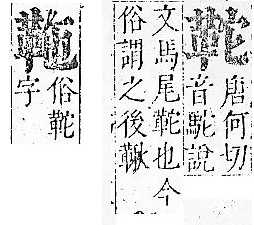 𩉺唐何切
音駝說
文馬尾𩉺也今
俗謂之後鞦
俗𩉺
字